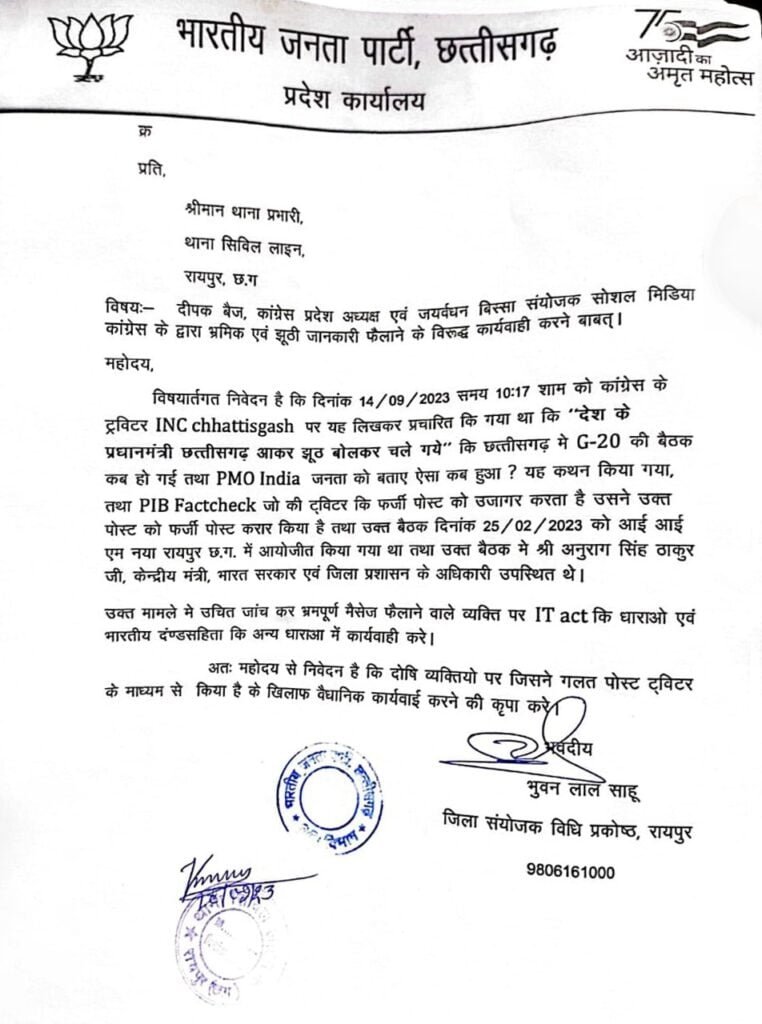 भारतीय जनता पार्टी, छत्तीसगढ़
प्रदेश कार्यालय
75
आज़ादी का
अमृत महोत्स
क्र
प्रति,
श्रीमान थाना प्रभारी,
थाना सिविल लाइन,
रायपुर, छ.ग
विषयः– दीपक बैज, कांग्रेस प्रदेश अध्यक्ष एवं जयवर्धन बिस्सा संयोजक सोशल मिडिया
कांग्रेस के द्वारा भ्रमिक एवं झूठी जानकारी फैलाने के विरूद्ध कार्यवाही करने बाबत्।
महोदय,
विषयार्तगत निवेदन है कि दिनांक 14/09/2023 समय 10:17 शाम को कांग्रेस के
ट्रविटर INC chhattisgash पर यह लिखकर प्रचारित कि गया था कि "देश के
प्रधानमंत्री छत्तीसगढ़ आकर झूठ बोलकर चले गये" कि छत्तीसगढ़ मे G-20 की बैठक
कब हो गई तथा PMO India जनता को बताए ऐसा कब हुआ ? यह कथन किया गया,
तथा PIB Factcheck जो की ट्विटर कि फर्जी पोस्ट को उजागर करता है उसने उक्त
पोस्ट को फर्जी पोस्ट करार किया है तथा उक्त बैठक दिनांक 25/02/2023 को आई आई
एम नया रायपुर छ.ग. में आयोजीत किया गया था तथा उक्त बैठक मे श्री अनुराग सिंह ठाकुर
जी, केन्द्रीय मंत्री, भारत सरकार एवं जिला प्रशासन के अधिकारी उपस्थित थे।
उक्त मामले मे उचित जांच कर भ्रमपूर्ण मैसेज फैलाने वाले व्यक्ति पर IT act कि धाराओ एवं
भारतीय दंण्डसहिता कि अन्य धाराआ में कार्यवाही करे।
अतः महोदय से निवेदन है कि दोषि व्यक्तियो पर जिसने गलत पोस्ट ट्विटर
के माध्यम से किया है के खिलाफ वैधानिक कार्यवाई करने की कृपा करे।
भवदीय
भुवन लाल साहू
जिला संयोजक विधि प्रकोष्ठ, रायपुर
9806161000
भारतीय जनता पार्टी, छत्तीसगढ़
रायपुर (छग)